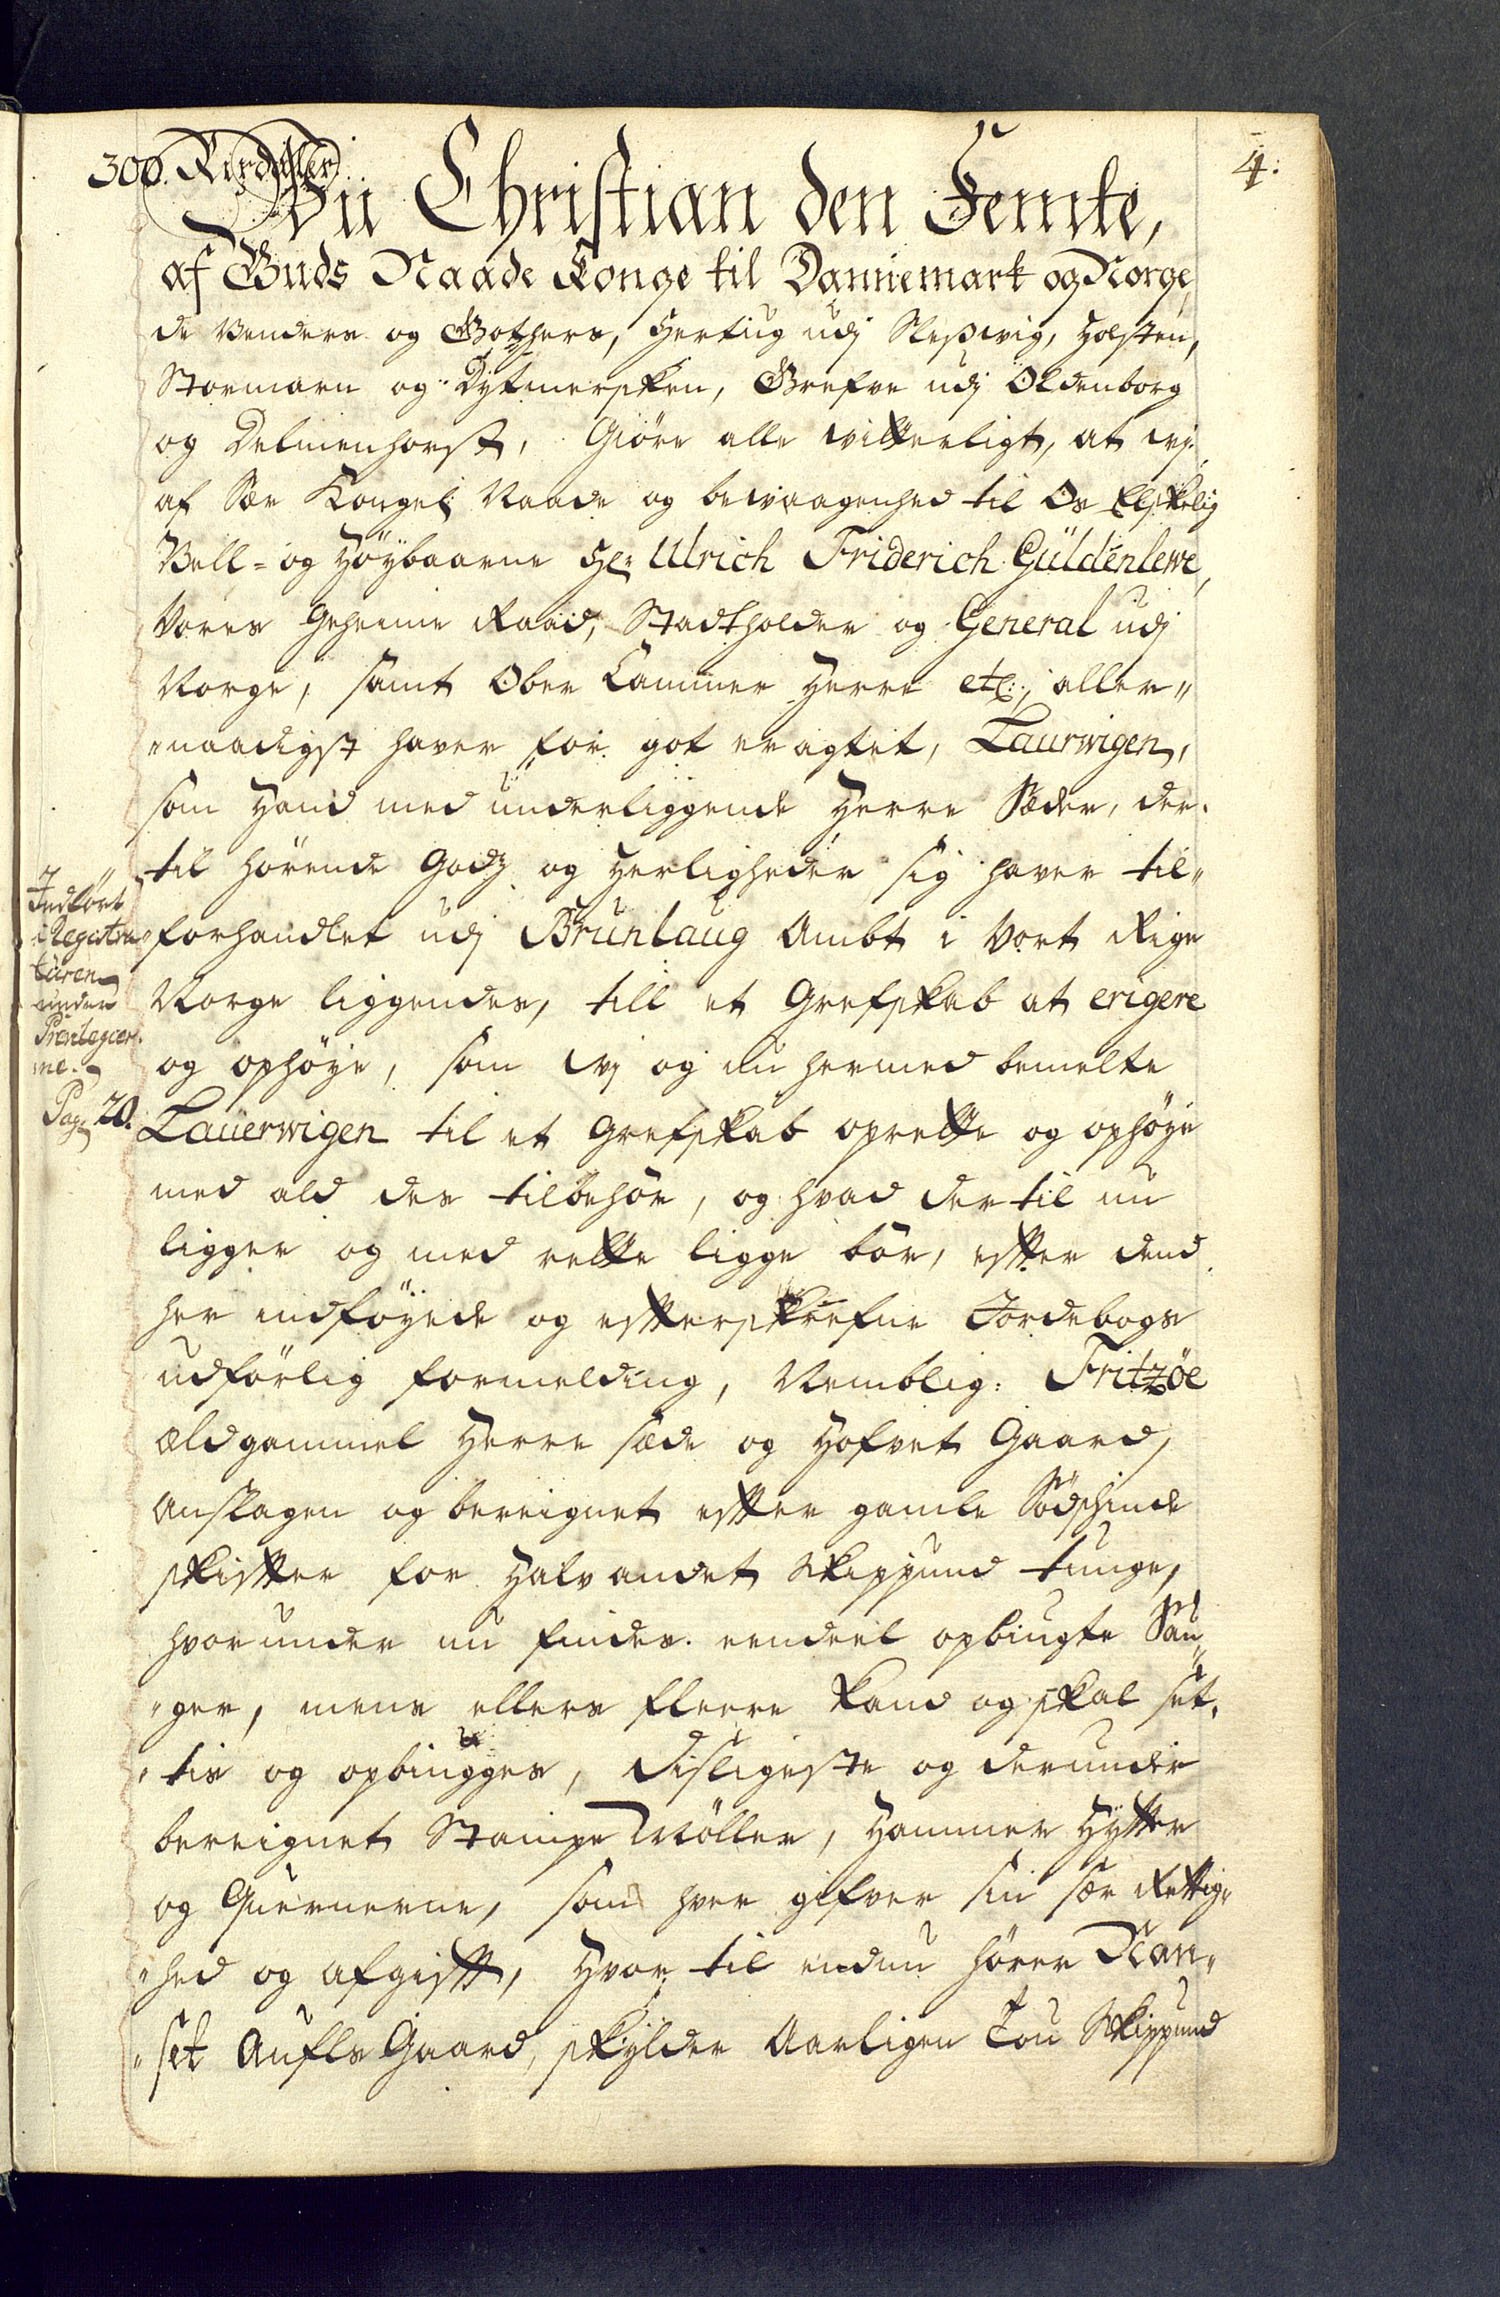 4.
300. Rixdaler
Wii Christian den Femte,
af Guds Naade Konge til Dannemark og Norge,
de Venders og Gothers, Hertug udj Sleßwig, Holsten,
Stormarn og Dytmersken, Grefve udj Oldenborg
og Delmenhorst, Giöre alle witterligt, at wj
af Sær Kongel: Naade og bewaagenhed til Os Elskelig
Vell- og Höybaarne Hr: Ulrich Friderich Güldenlewe,
Vores Geheime Raad, Stadtholder og General udj
Norge, samt Ober Cammer Herre etc:, aller„
„naadigst haver for got eragtet, Laurwigen,
som Hand med underliggende Herre Sæder, der„
til hörende Godz og Herligheder sig haver til„
forhandlet udj Brunlaug Ambt i Vort Rige
Norge liggendes, till et Grefskab at erigere
og ophöye, som wj og nu hermed bemelte
Lauerwigen til et Grefskab oprette og ophöye
med ald des tilbehör, og hvad der til nu
ligger og med rette ligge bör, effter dend
her indföyede og effterskrefne Jordebogs
udförlig formelding, Nemblig: Fritzöe
ældgammel Herre sæde og Hofvet Gaard,
Anslagen og bereignet effter gamle
skiffter for Halvandet Skippund tunge,
hvorunder nu findes eendeel opbiugte Sau„
„ger, mens ellers fleere kand og skal set„
„tis og opbiugges, disligeste og derunder
bereignet Stampe Möller, Hammer Hytter
og Quernerne, som hver gifver sin sær Rettig„
„hed og afgifft, Hvor til endnu hörer Nan„
„set Aufls Gaard, skylder Aarligen Tou Skippund
Indfört
i Registra„
turen
under
Privilegier„
ne.
Pag: 20.